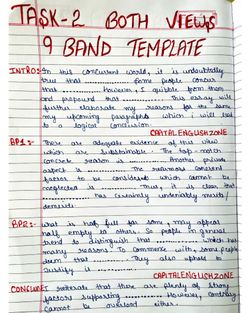 TASK-2 BOTH VIEWS
9 BAND TEMPLATE
INTRO:- In this concurrent world, it is undoubtedly
true that ............ Some people concur
that ............ However, I quibble from them
and propound that ............ This essay will
further elaborate my reasons for the same
my upcoming paragraphs which i will lead
to a logical conclusion.
CAPITALENGLISHZONE
BP1:- There are adequate evidence of this view
which are substantiable. The top-most
concrete reason is ............ Another
aspect is ............ The
factors to be considered which cannot be
neglected is ............ Thus, it is clear that
............ has certainly undeniably merits/
demerits.
BP2:- What is half full for some, may appear
half empty to others. So people in general
tend to distinguish that ............ which has
many reasons. To commence with, some people
deem that ............ They also
justify it ............
CAPITALENGLISHZONE
CONCLUSION: I reiterate that there are plenty of strong
factors supporting ............ However,
cannot be overlooked either.